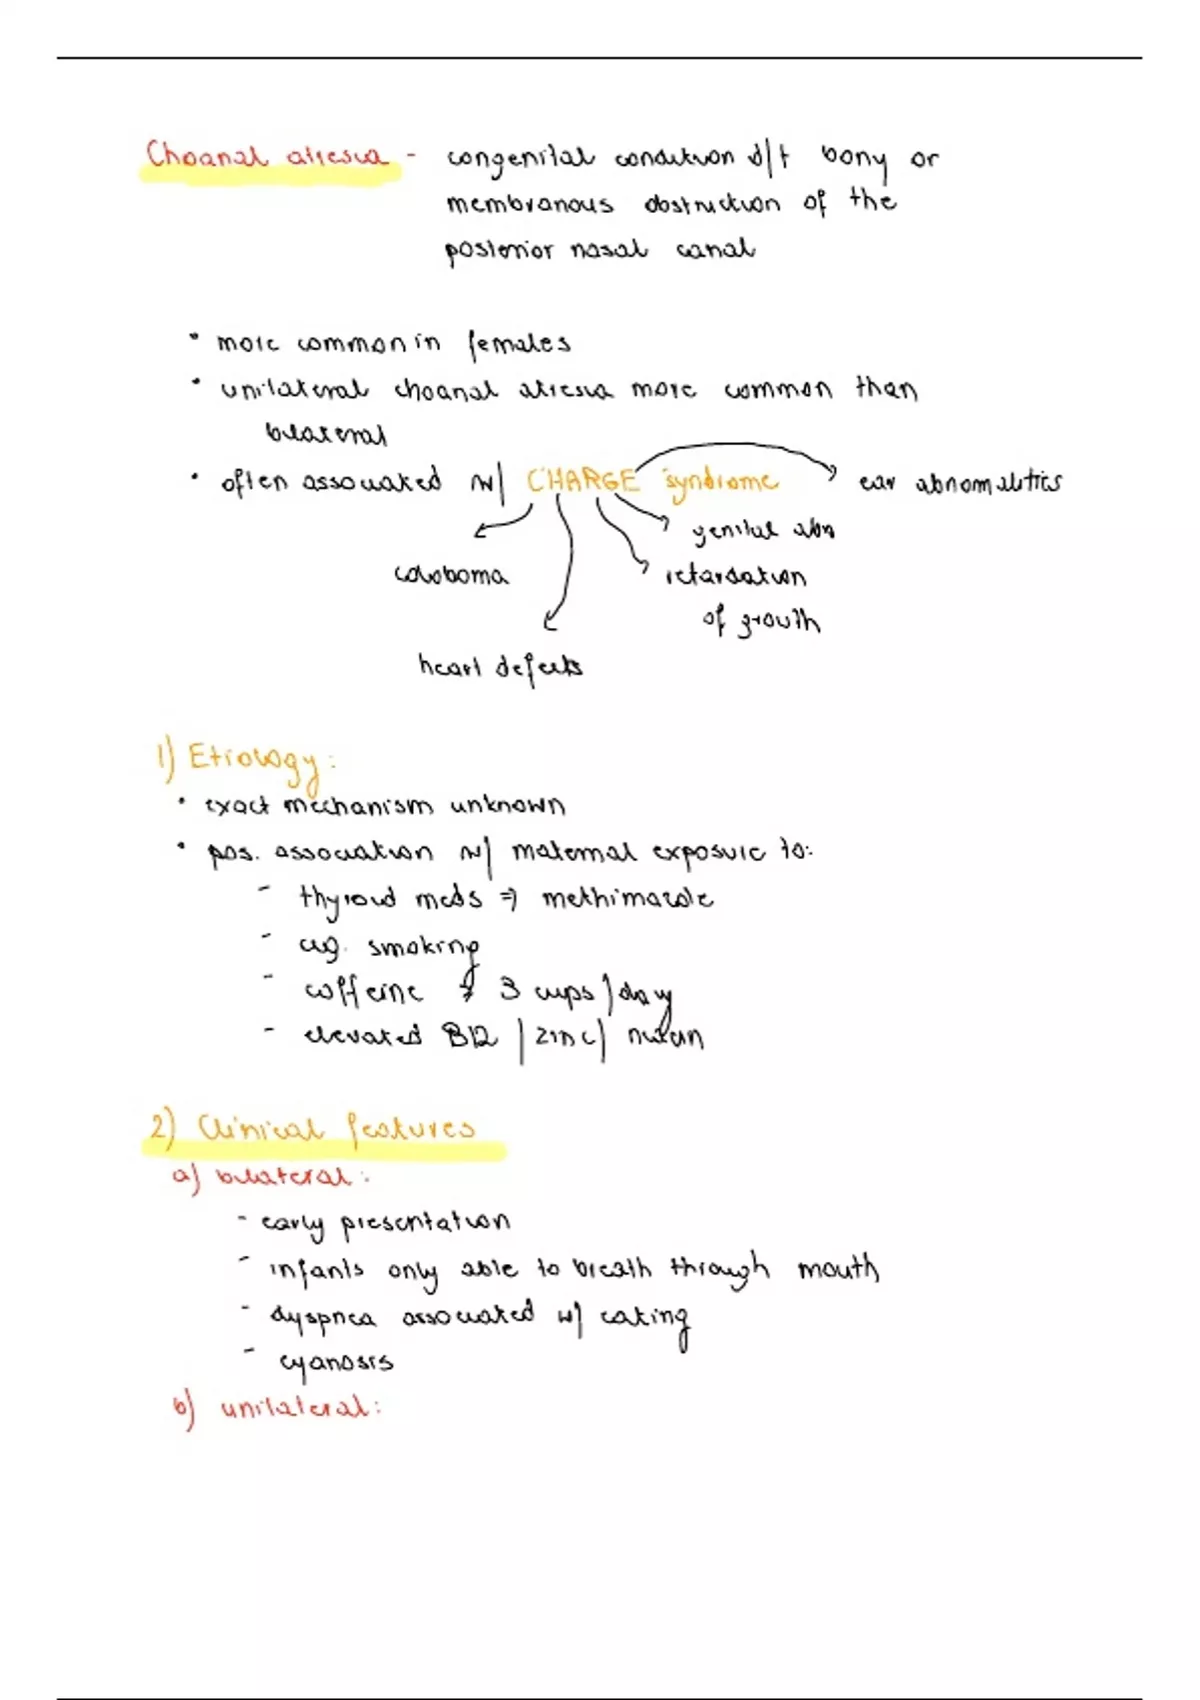 Choanal atresia - congenital condition d/t bony or
membranous obstruction of the
posterior nasal canal
• more common in females
• unilateral choanal atresia more common than
bilateral
• often associated w/ CHARGE syndrome → ear abnomalitics
genital abn
coloboma retardation
of growth
heart defects
1) Etiology:
• exact mechanism unknown
• pos. association w/ maternal exposure to:
- thyroid meds ⇒ methimazole
- cig. smoking
- coffeine 3 cups/day
- elevated B12 / zinc / niacin
2) Clinical features
a) bilateral:
- early presentation
- infants only able to breath through mouth
- dyspnea associated w/ eating
- cyanosis
b) unilateral: